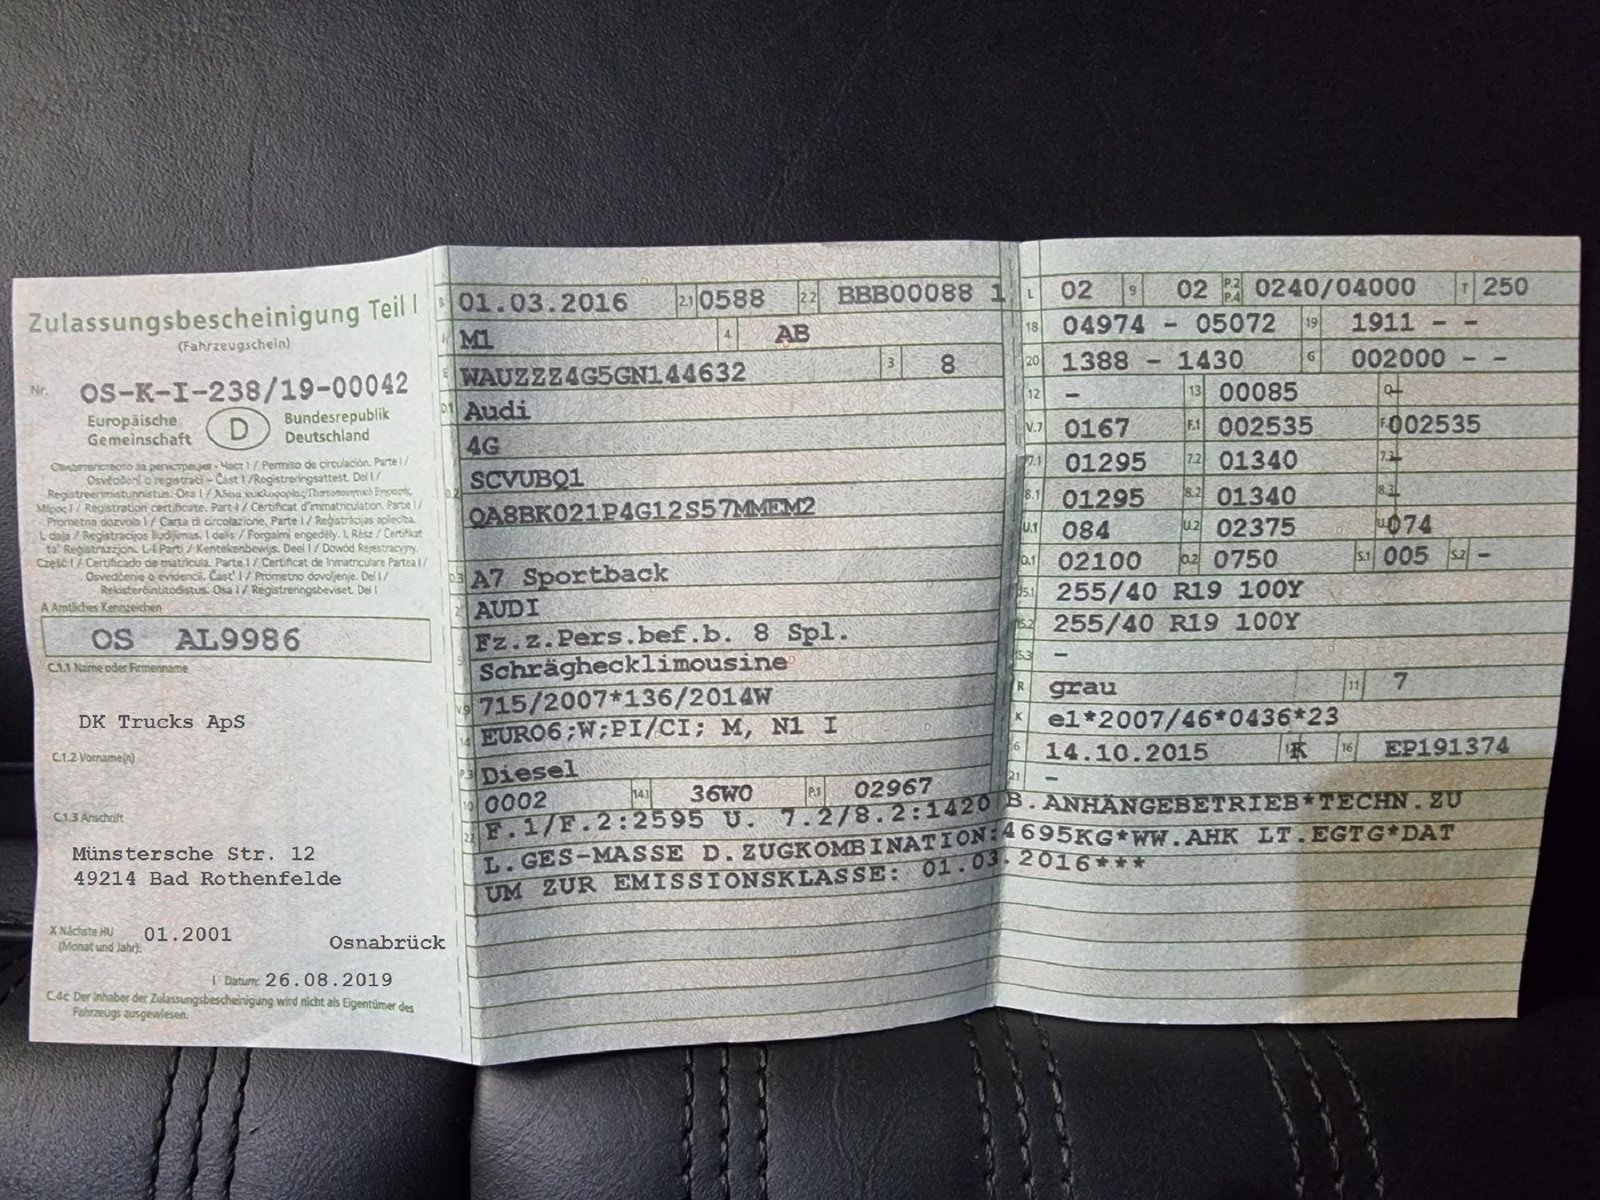 Zulassungsbescheinigung Teil I
(Fahrzeugschein)
Nr. OS-K-I-238/19-00042
Europäische Gemeinschaft D Bundesrepublik Deutschland
Свидетелството за регистрация - Част I / Permiso de circulación. Parte I /
Osvědčení o registraci - Část I / Registreringsattest. Del I /
Registreerimistunnistus. Osa I /
Μέρος I / Registration certificate. Part I / Certificat d'immatriculation. Partie I /
Prometna dozvola I / Carta di circolazione. Parte I / Reģistrācijas apliecība.
I. daļa / Registracijos liudijimas. I dalis / Forgalmi engedély. I. Rész / Certifikat
ta' Reġistrazzjoni. L-I Parti / Kentekenbewijs. Deel I / Dowód Rejestracyjny.
Część I / Certificado de matrícula. Parte I / Certificat de înmatriculare Partea I /
Osvedčenie o evidencii. Časť I / Prometno dovoljenje. Del I /
Rekisteröintitodistus. Osa I / Registreringsbeviset. Del I
A Amtliches Kennzeichen
OS AL9986
C.1.1 Name oder Firmenname
DK Trucks ApS
C.1.2 Vorname(n)
C.1.3 Anschrift
Münstersche Str. 12
49214 Bad Rothenfelde
X Nächste HU (Monat und Jahr): 01.2001
Osnabrück
I Datum: 26.08.2019
C.4c Der Inhaber der Zulassungsbescheinigung wird nicht als Eigentümer des
Fahrzeugs ausgewiesen.
B 01.03.2016 2.1 0588 2.2 BBB00088 1
J M1 4 AB
E WAUZZZ4G5GN144632 3 8
D.1 Audi
4G
D.2 SCVUBQ1
QA8BK021P4G12S57MMEM2
D.3 A7 Sportback
2 AUDI
Fz.z.Pers.bef.b. 8 Spl.
5 Schräghecklimousine
V.9 715/2007*136/2014W
14 EURO6;W;PI/CI; M, N1 I
P.3 Diesel
10 0002 14.1 36W0 P.1 02967
22 F.1/F.2:2595 U. 7.2/8.2:1420 B.ANHÄNGEBETRIEB*TECHN.ZU
L.GES-MASSE D.ZUGKOMBINATION:4695KG*WW.AHK LT.EGTG*DAT
UM ZUR EMISSIONSKLASSE: 01.03.2016***
L 02 9 02 P.2 P.4 0240/04000 T 250
18 04974 - 05072 19 1911 - -
20 1388 - 1430 G 002000 - -
12 - 13 00085 Q -
V.7 0167 F.1 002535 F. 002535
7.1 01295 7.2 01340 7.3 -
8.1 01295 8.2 01340 8.3 -
U.1 084 U.2 02375 U. 074
O.1 02100 O.2 0750 S.1 005 S.2 -
15.1 255/40 R19 100Y
15.2 255/40 R19 100Y
15.3 -
R grau 11 7
K e1*2007/46*0436*23
6 14.10.2015 K 16 EP191374
21 -